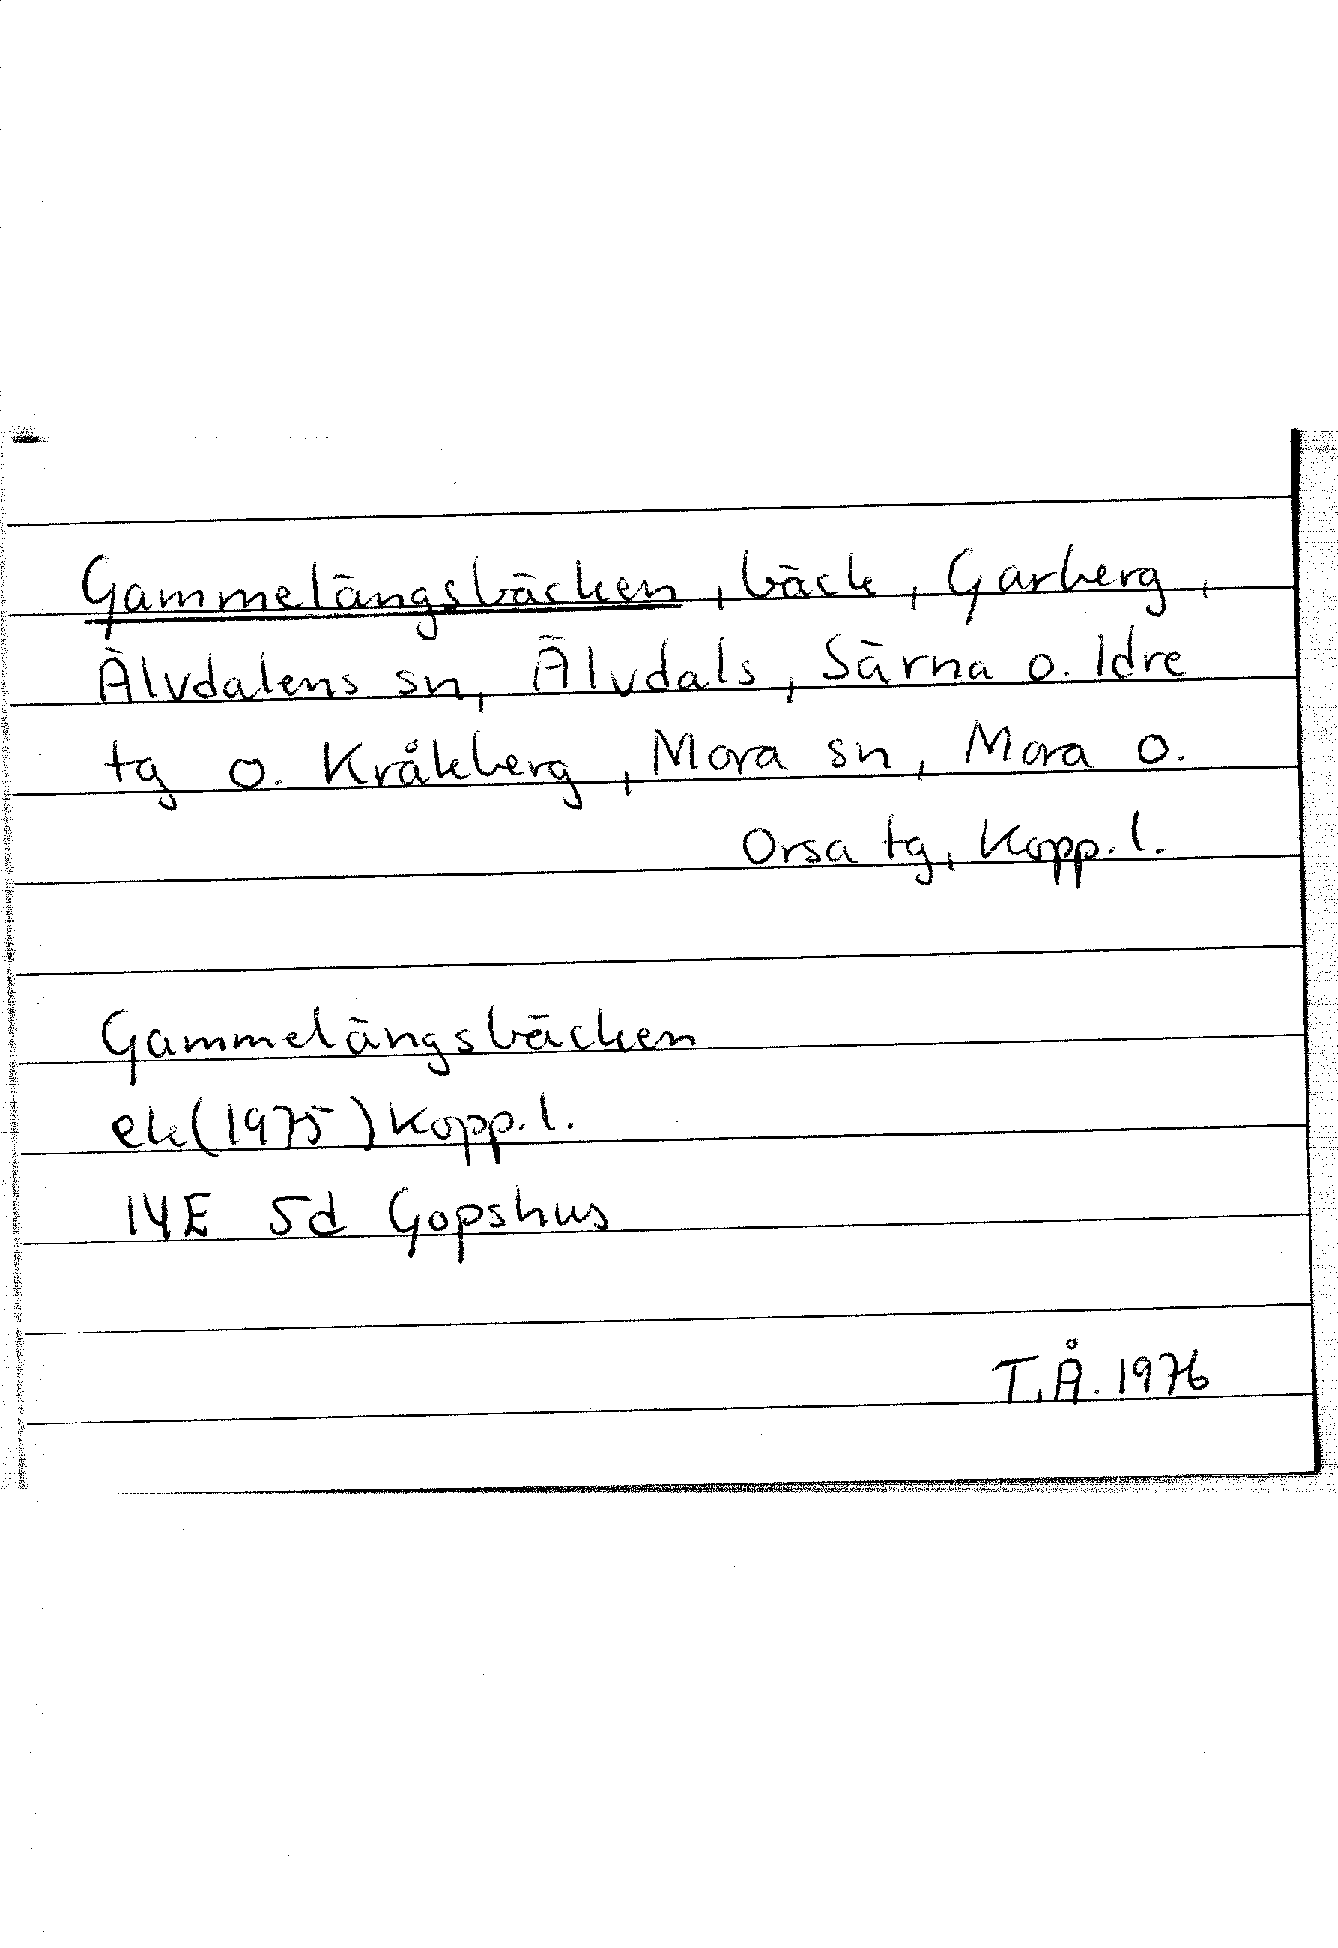 Gammelängsbäcken, bäck, Garberg,
Älvdalens sn, Älvdals, Särna o. Idre
tg o. Kråkberg, Mora sn, Mora o.
Orsa tg, Kopp. l.
Gammelängsbäcken
ek(1975) Kopp. l.
14E 5d Gopshus
T.Å. 1976